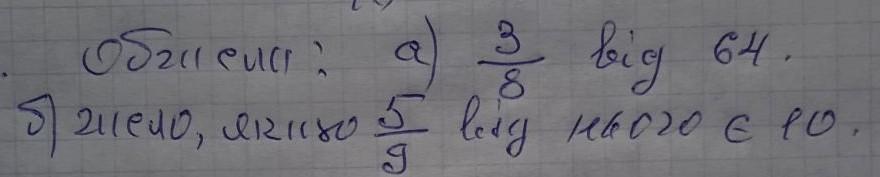 Обчисли: а) 3/8 від 64.
б) число, якщо 5/9 від нього є 10.